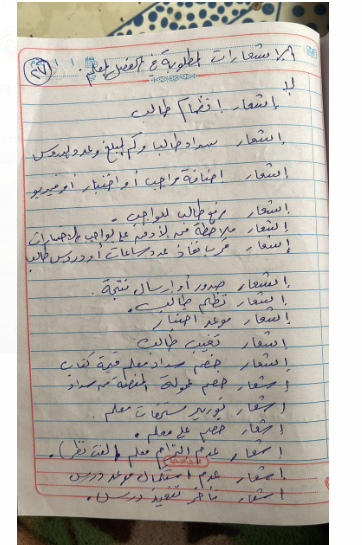 الإشعارات المطلوبة في الفصل لمعلم
(٢٧)
إشعار انضمام طالب
إشعار سداد طالب وكم المبلغ وعدد الدروس
إشعار إضافة واجب أو اختبار أو فيديو
إشعار رفع طالب للواجب .
إشعار ملاحظة على الواجب
إشعار قرب نفاذ عدد ساعات أو دروس طالب
إشعار صدور أو إرسال نتيجة .
إشعار تظلم طالب .
إشعار موعد اختبار
إشعار تغيب طالب
إشعار خصم سداد معلم قيمة كتاب
إشعار خصم عمولة المنصة من سداد
إشعار توريد مستحقات معلم .
إشعار خصم على معلم .
إشعار عدم التزام معلم (لفت نظر) .
إشعار عدم استكمال موعد درس
إشعار تأخر تنفيذ درس .